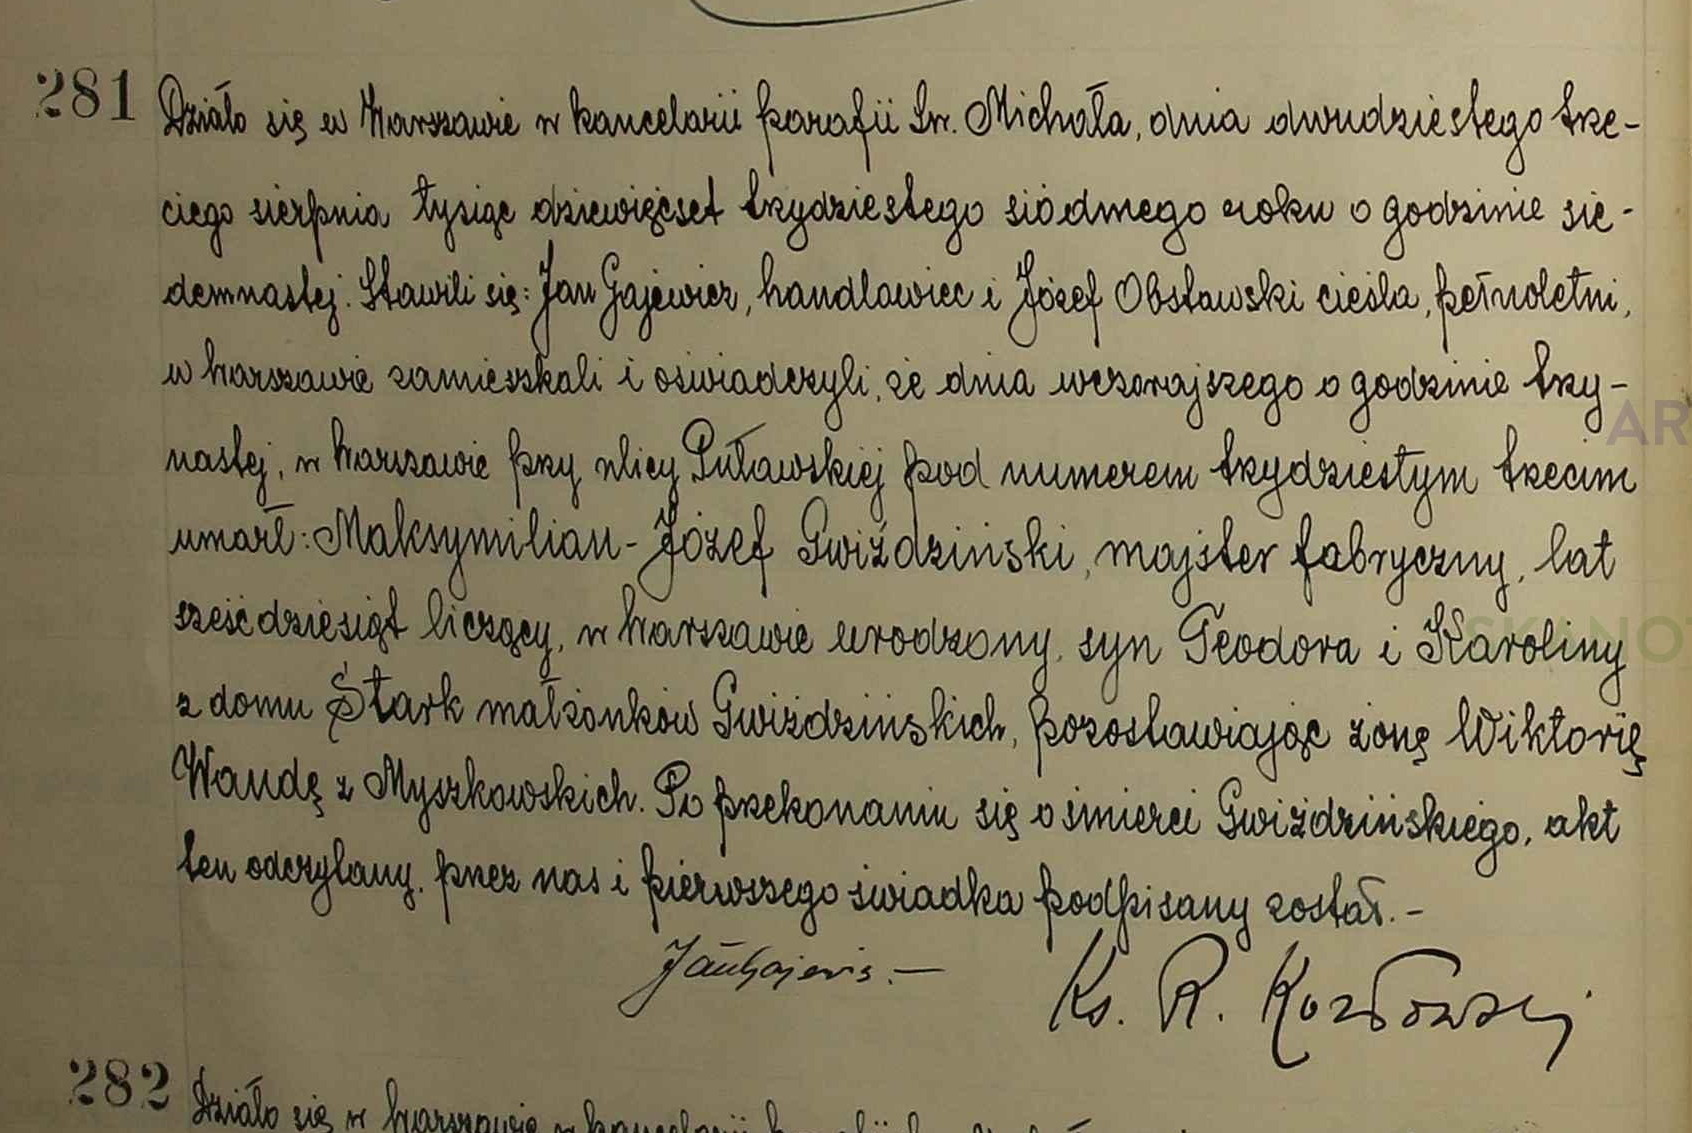 281 Działo się w Warszawie w kancelarii parafii Św. Michała, dnia dwudziestego trze-
ciego sierpnia tysiąc dziewięćset trzydziestego siódmego roku o godzinie sie-
demnastej. Stawili się: Jan Gajewicz, handlowiec i Józef Obstawski cieśla, pełnoletni,
w Warszawie zamieszkali i oświadczyli, że dnia wczorajszego o godzinie trzy-
nastej, w Warszawie przy ulicy Puławskiej pod numerem trzydziestym trzecim
umarł: Maksymilian-Józef Gwiździński, majster fabryczny, lat
sześćdziesiąt liczący, w Warszawie urodzony, syn Teodora i Karoliny
z domu Stark małżonków Gwiździńskich, pozostawiając żonę Wiktorię
Wandę z Myszkowskich. Po przekonaniu się o śmierci Gwiździńskiego, akt
ten odczytany, przez nas i pierwszego świadka podpisany został.-
Jan Gajewicz.— Ks. R. Kozłowski
282 Działo się w Warszawie w kancelarii
AR
SKANOT